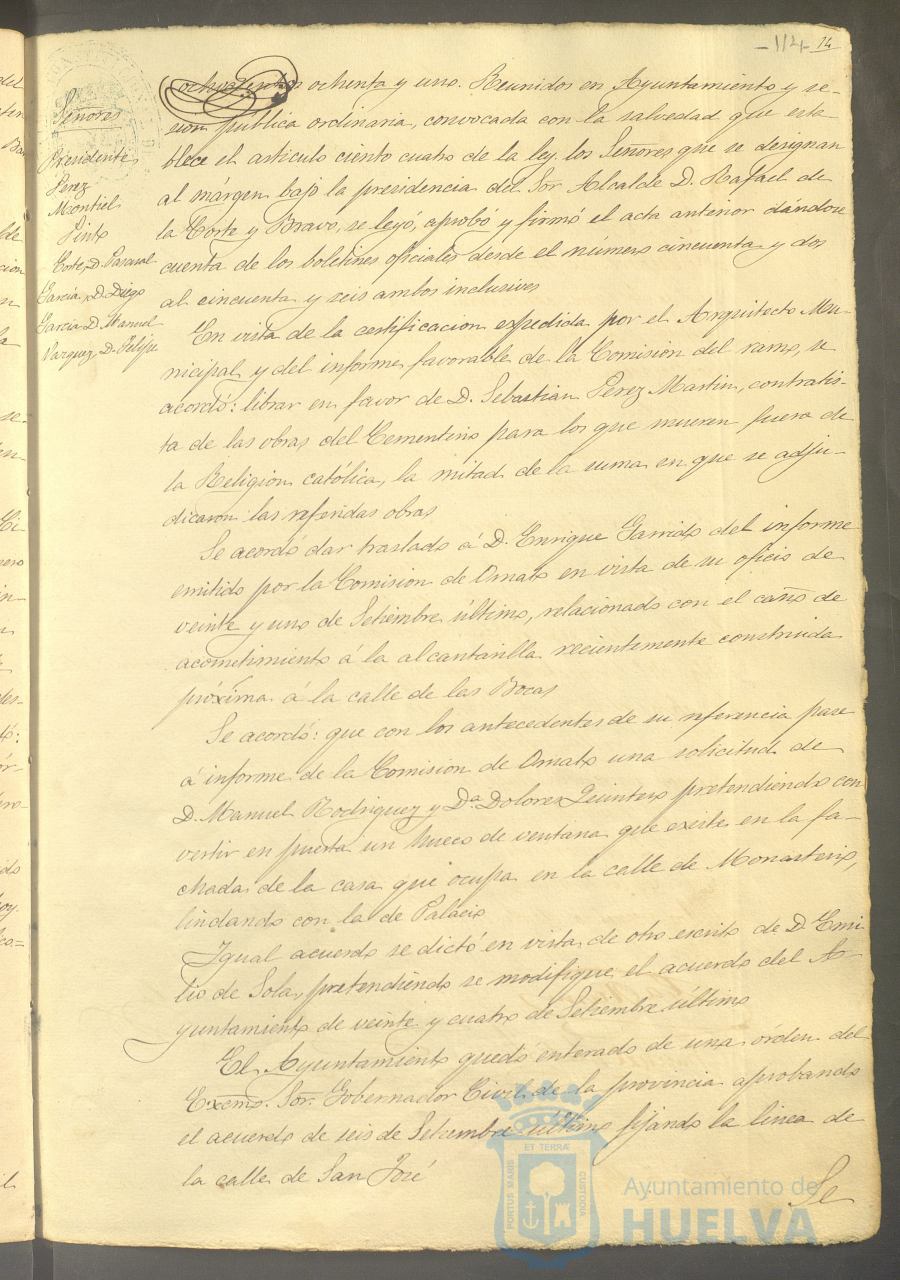 -114- 14
Señores
Presidente
Perez
Montiel
Pinto
Corte, D. Pascual
Garcia, D. Diego
Garcia D. Manuel
Vazquez, D. Felipe
ochocientos ochenta y uno. Reunidos en Ayuntamiento y se-
sion pública ordinaria, convocada con la salvedad que esta
blece el artículo ciento cuatro de la ley, los Señores que se designan
al márgen bajo la presidencia del Sor Alcalde D. Rafael de
la Corte y Bravo, se leyó, aprobó y firmó el acta anterior dándose
cuenta de los boletines oficiales desde el número cincuenta y dos
al cincuenta y seis ambos inclusives
En vista de la certificacion expedida por el Arquitecto Mu-
nicipal y del informe favorable de la Comision del ramo, se
acordó: librar en favor de D. Sebastian Perez Martin, contratis-
ta de las obras del Cementerio para los que mueren fuera de
la Religion católica, la mitad de la suma en que se adju-
dicaron las referidas obras
Se acordó dar traslado á D. Enrique Garrido del informe
emitido por la Comision de Ornato en vista de su oficio de
veinte y uno de Setiembre último, relacionado con el caño de
acometimiento á la alcantarilla recientemente construida
próxima á la calle de las Bocas
Se acordó: que con los antecedentes de su referencia pase
á informe de la Comision de Ornato una solicitud de
D. Manuel Rodriguez y Dª Dolores Quintero pretendiendo con
vertir en puerta un hueco de ventana que existe en la fa-
chada de la casa que ocupa en la calle de Monasterio,
lindando con la de Palacio
Igual acuerdo se dictó en vista de otro escrito de D Emi
lio de Sola, pretendiendo se modifique el acuerdo del A-
yuntamiento de veinte y cuatro de Setiembre último
El Ayuntamiento quedó enterado de una órden del
Excmo. Sor. Gobernador Civil de la provincia aprobando
el acuerdo de seis de Setiembre último fijando la linea de
la calle de San José
Se
PORTUS MARIS ET TERRÆ CUSTODIA
Ayuntamiento de
HUELVA